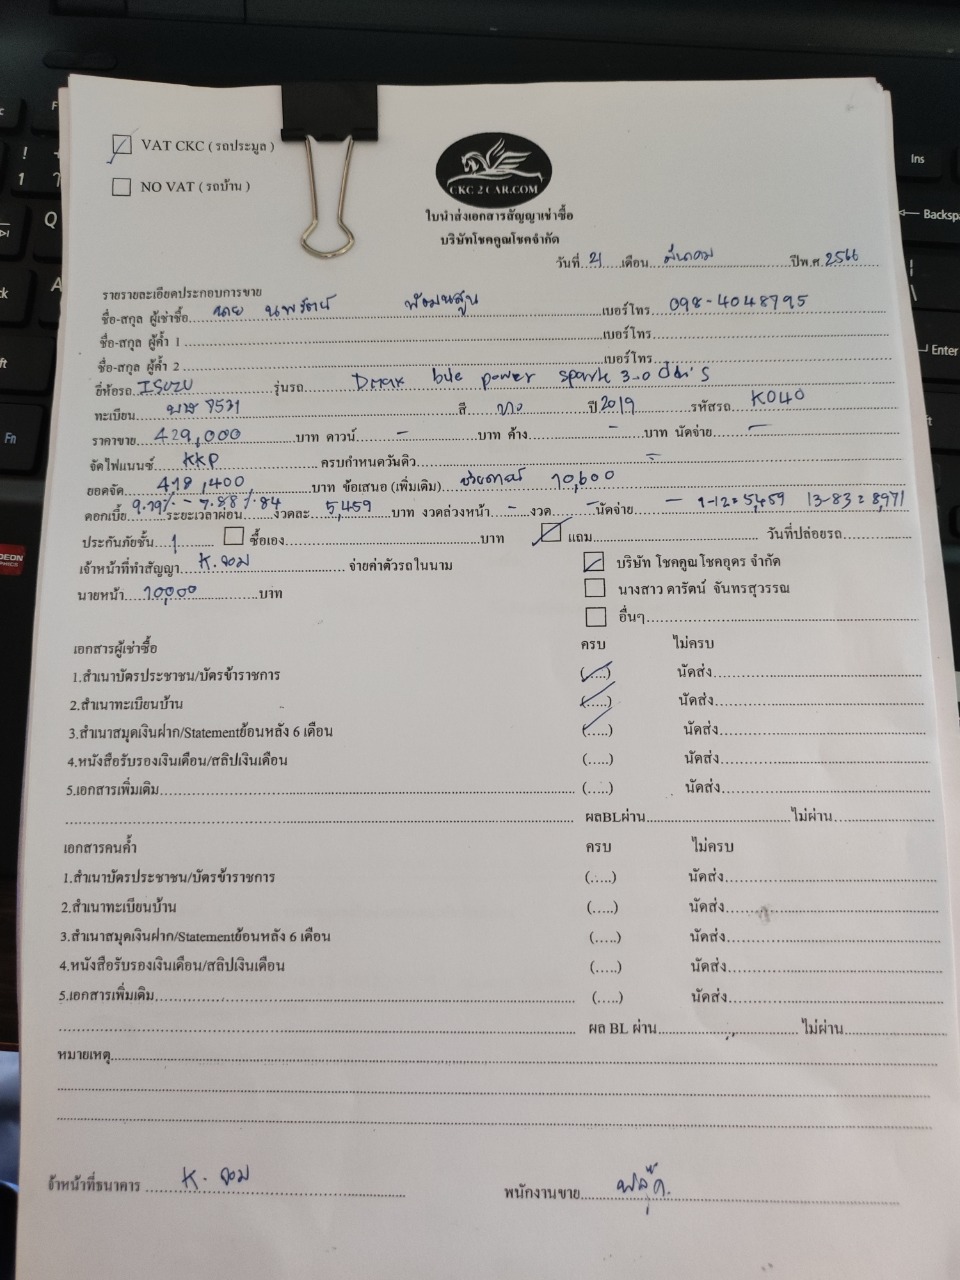 VAT CKC ( รถประมูล )
NO VAT ( รถบ้าน )
CKC 2 CAR.COM
ใบนำส่งเอกสารสัญญาเช่าซื้อ
บริษัทโชคคูณโชคจำกัด
วันที่ 21 เดือน มีนาคม ปีพ.ศ. 2566
รายรายละเอียดประกอบการขาย
ชื่อ-สกุล ผู้เช่าซื้อ นาย นพรัตน์ เบอร์โทร 098-4048795
ชื่อ-สกุล ผู้ค้ำ 1 เบอร์โทร
ชื่อ-สกุล ผู้ค้ำ 2 เบอร์โทร
ยี่ห้อรถ ISUZU รุ่นรถ Dmax blue power spark 3.0 S
ทะเบียน สี ขาว ปี 2019 รหัสรถ K040
ราคาขาย 429,000 บาท ดาวน์ - บาท ค้าง - บาท นัดจ่าย -
จัดไฟแนนซ์ KKP ครบกำหนดวันคิว -
ยอดจัด 418,400 บาท ข้อเสนอ (เพิ่มเติม) ช่วยดาวน์ 10,600
ดอกเบี้ย 9.79% - 7.88% ระยะเวลาผ่อน 84 งวดละ 5,459 บาท งวดล่วงหน้า - งวด - นัดจ่าย - 1-12=5,459 13-83=8,971
ประกันภัยชั้น 1 ซื้อเอง บาท แถม วันที่ปล่อยรถ
เจ้าหน้าที่ทำสัญญา K. จอม จ่ายค่าตัวรถในนาม บริษัท โชคคูณโชคอุดร จำกัด
นายหน้า 10,000 บาท นางสาว ดารัตน์ จันทรสุวรรณ
อื่นๆ
เอกสารผู้เช่าซื้อ ครบ ไม่ครบ
1.สำเนาบัตรประชาชน/บัตรข้าราชการ (.....) นัดส่ง
2.สำเนาทะเบียนบ้าน (.....) นัดส่ง
3.สำเนาสมุดเงินฝาก/Statementย้อนหลัง 6 เดือน (.....) นัดส่ง
4.หนังสือรับรองเงินเดือน/สลิปเงินเดือน (.....) นัดส่ง
5.เอกสารเพิ่มเติม (.....) นัดส่ง
ผลBLผ่าน ไม่ผ่าน
เอกสารคนค้ำ ครบ ไม่ครบ
1.สำเนาบัตรประชาชน/บัตรข้าราชการ (.....) นัดส่ง
2.สำเนาทะเบียนบ้าน (.....) นัดส่ง
3.สำเนาสมุดเงินฝาก/Statementย้อนหลัง 6 เดือน (.....) นัดส่ง
4.หนังสือรับรองเงินเดือน/สลิปเงินเดือน (.....) นัดส่ง
5.เอกสารเพิ่มเติม (.....) นัดส่ง
ผล BL ผ่าน ไม่ผ่าน
หมายเหตุ
จ้าหน้าที่ธนาคาร K. จอม พนักงานขาย